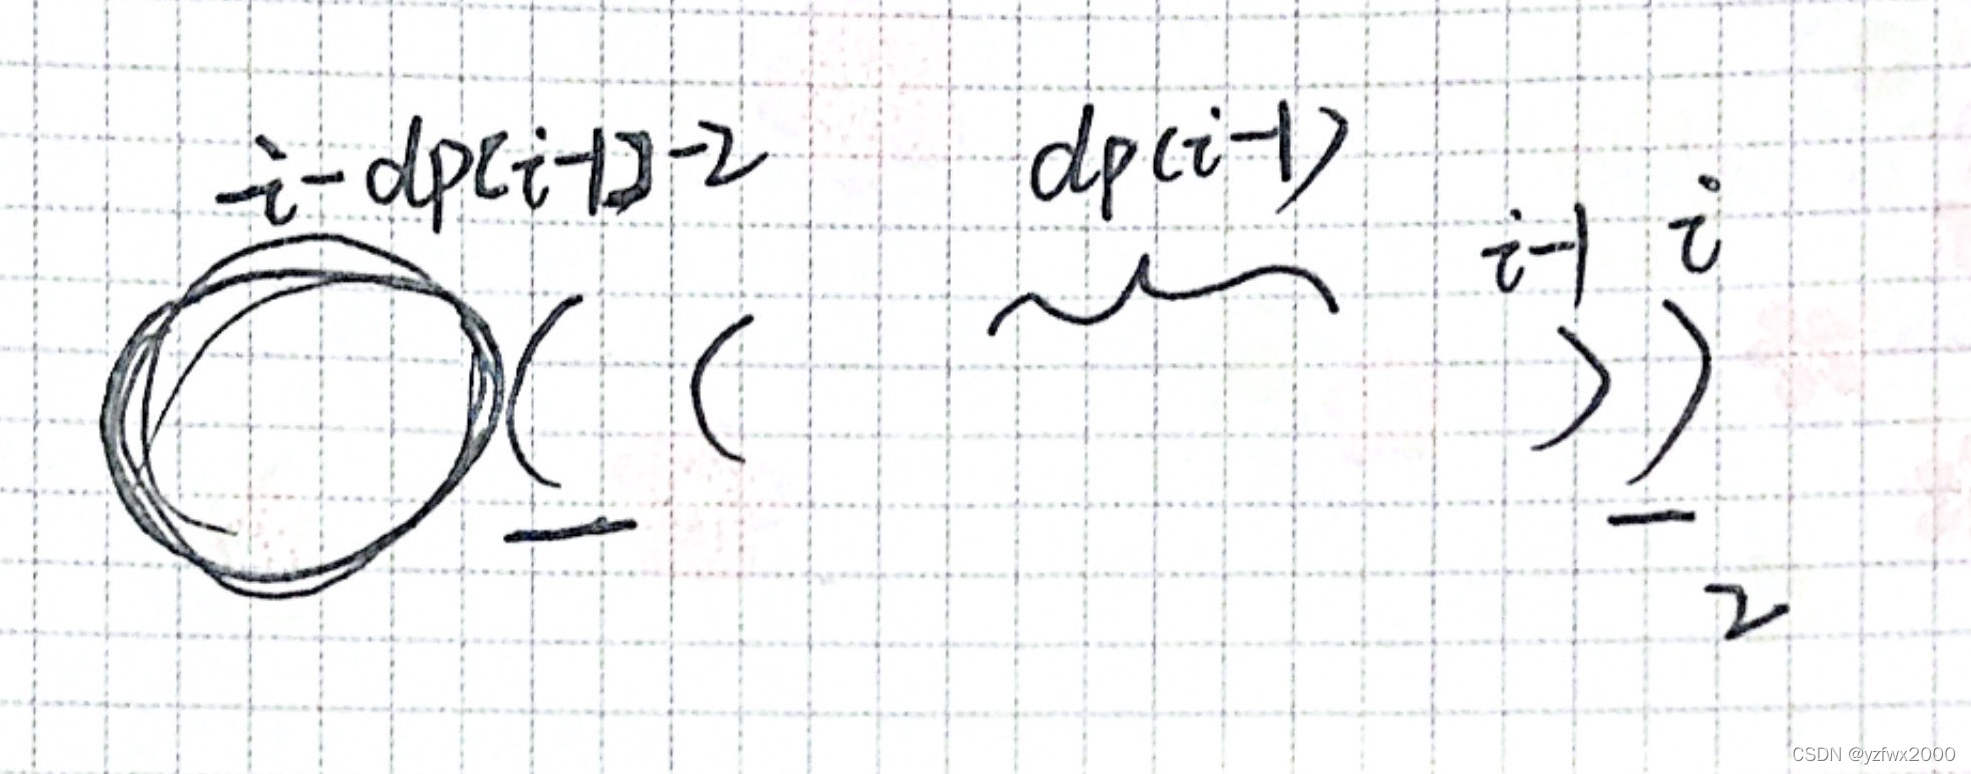 i-dp[i-1]-2 dp(i-1)
i-1 i
( ( ) )
2
CSDN @yzfwx2000